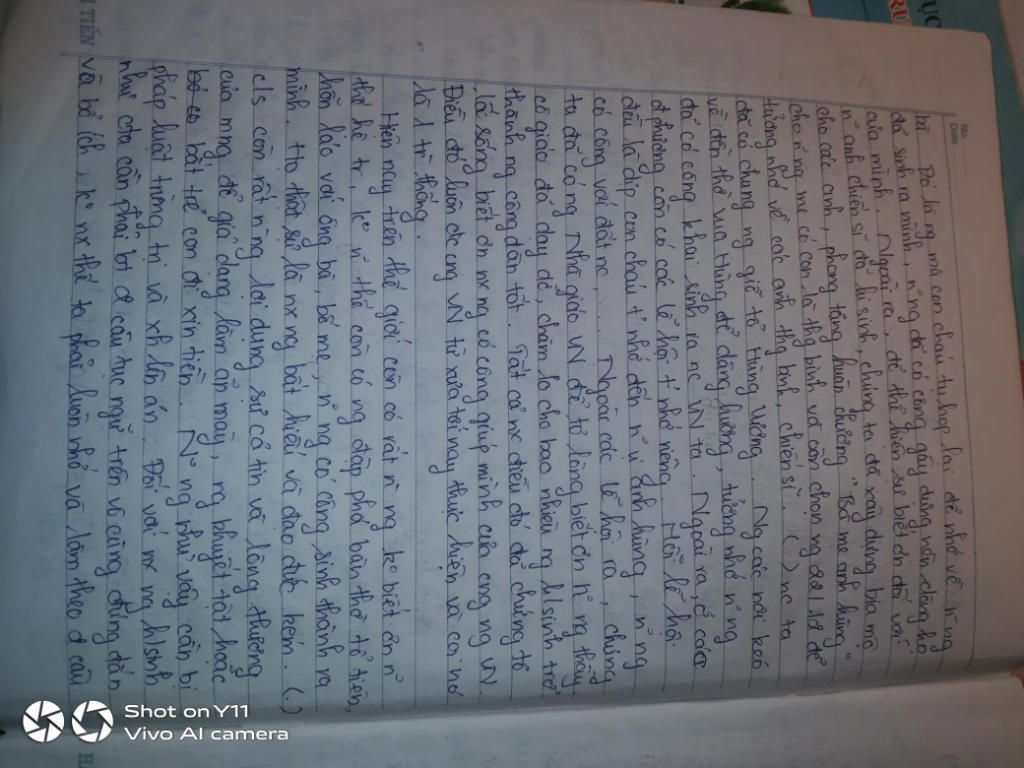 No.
Date
bè. Đó là ng mà con cháu tụ họp lại để nhớ về n~ ng
đã sinh ra mình, n~ ng đã có công gây dựng nên dòng họ
của mình. Ngoài ra, để thể hiện sự biết ơn đối với
n~ anh chiến sĩ đã hi sinh, chúng ta đã xây dựng bia mộ
cho các anh, phong tặng huân chương "Bà mẹ anh hùng"
cho n~ ng mẹ có con là thg binh và còn chọn ng 22/12 để
tưởng nhớ về các anh thg binh, chiến sĩ. ( ) nc ta
đã có chung ng giỗ tổ Hùng Vương. Ng các nơi kéo
về đền thờ vua Hùng để dâng hương, tưởng nhớ n~ ng
đã có công khai sinh ra nc VN ta. Ngoài ra, ở các
địa phương còn có các lễ hội t² nhớ riêng. Mỗi lễ hội
đều là dịp con cháu t² nhớ đến n~ vị anh hùng, n~ ng
có công với đất nc, ... Ngoài các lễ hội ra, chúng
ta đã có ng Nhà giáo VN để tỏ lòng biết ơn n~ ng thầy,
cô giáo đã dạy dỗ, chăm lo cho bao nhiêu ng h/sinh trở
thành ng công dân tốt. Tất cả nx điều đó đã chứng tỏ
lẽ sống biết ơn nx ng có công giúp mình của cng ng VN.
Điều đó luôn đc cng VN từ xưa tới nay thực hiện và coi nó
là 1 tr` thống.
Hiện nay trên thế giới còn có rất n` ng ko biết ơn n~
thế hệ tr', k° n~ thế còn có ng đập phá bàn thờ tổ tiên,
hỗn láo với ông bà, bố mẹ, n~ ng có công sinh thành ra
mình. Họ thật sự là nx ng bất hiếu và đạo đức kém. (.)
c/s còn rất n` ng lợi dụng sự cả tin và lòng thương
của mng để giả dạng làm ăn mày, ng khuyết tật hoặc
bắt trẻ con đi xin tiền. N~ ng như vậy cần bị
pháp luật trừng trị và xh lên án. Đối với mx ng h/sinh
như cta cần phải bt ơ câu tục ngữ trên vô cùng đúng đắn
và bổ ích, k° nx thế ta phải luôn nhớ và làm theo ơ câu
TIẾN
Shot on Y11
Vivo AI camera